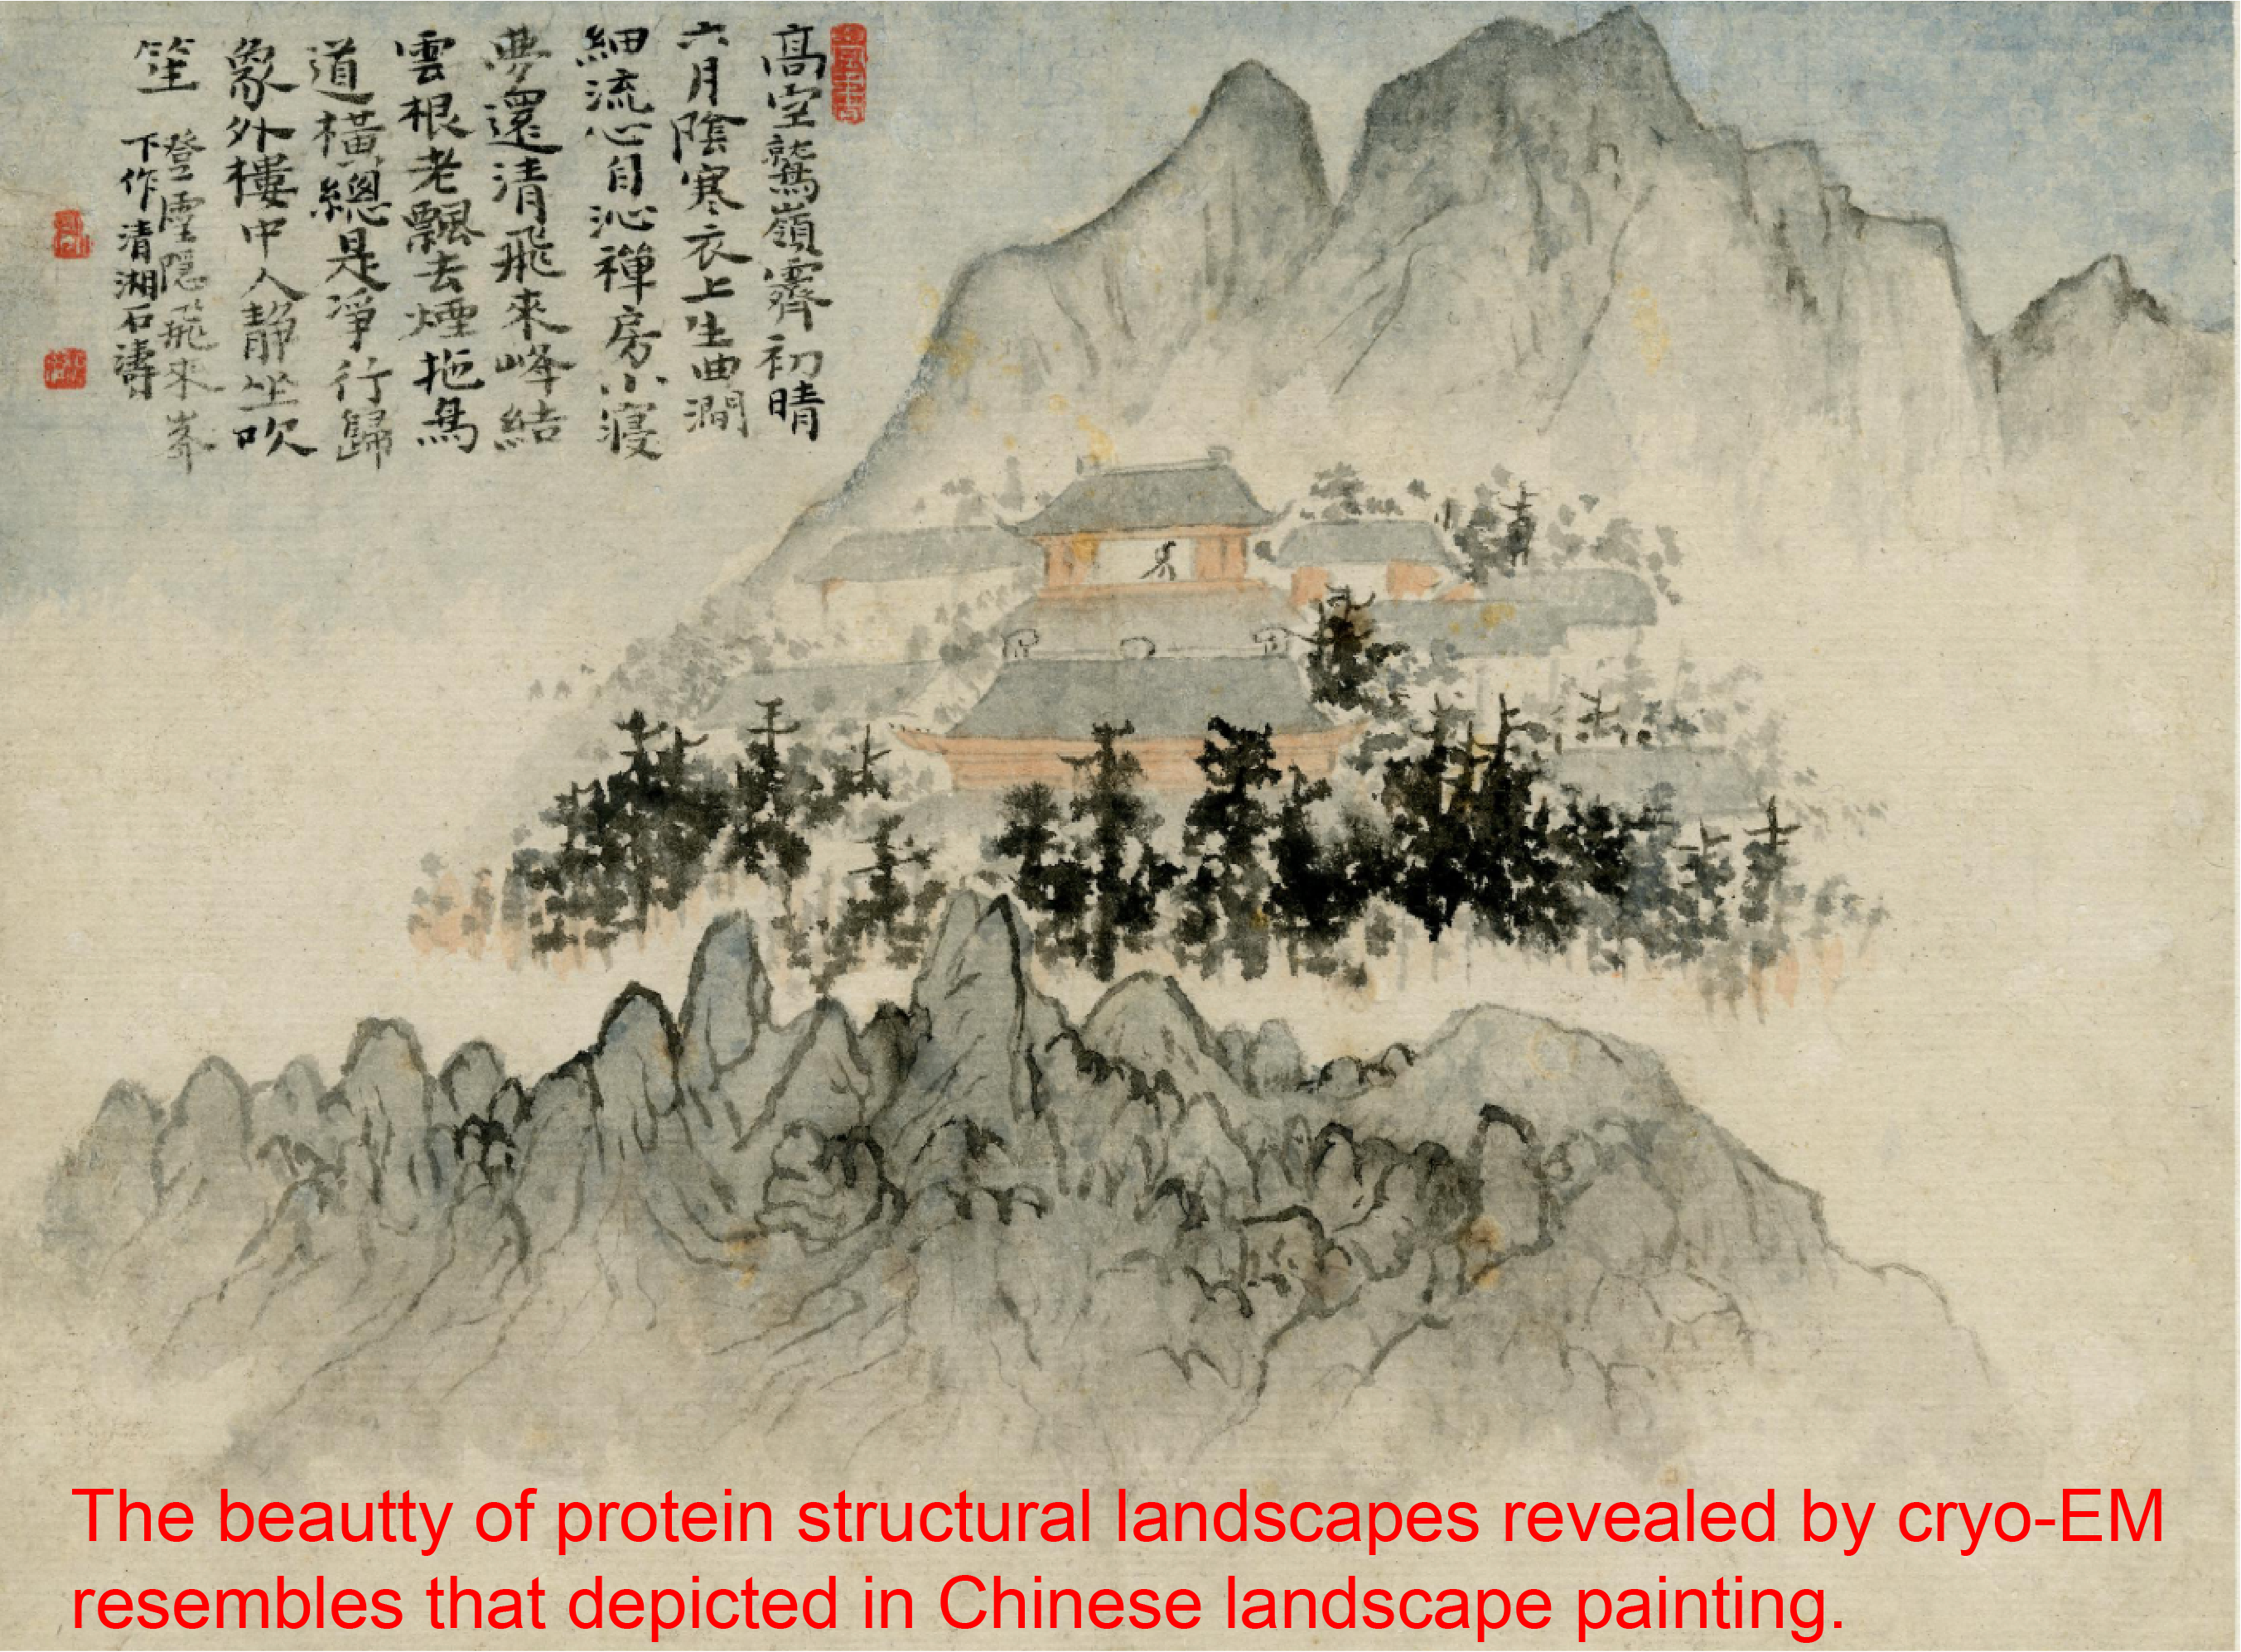 高空鷲嶺霽初晴
六月陰寒衣上生曲澗
細流心目沁禪房小寢
夢還清飛來峰結
雲根老飄去煙拖鳥
道橫總是淨行歸
象外樓中人靜坐吹
笙 登靈隱飛來峯
下作清湘石濤
The beautty of protein structural landscapes revealed by cryo-EM
resembles that depicted in Chinese landscape painting.